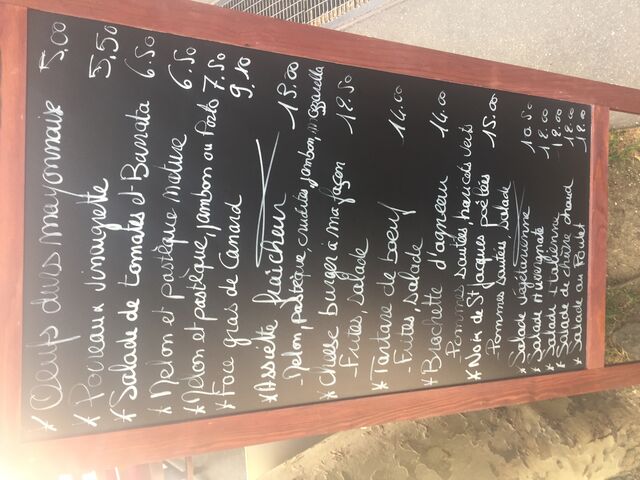 * Oeufs durs mayonnaise 5,00
* Poireaux vinaigrette 5,50
* Salade de tomates et Burrata 6.50
* Melon et pastèque nature 6.50
* Melon et pastèque, jambon ou Porto 7.50
* Foie gras de Canard 9,10
* Assiette fraîcheur 13.00
- Melon, pastèque crudités, jambon,
* Cheese burger à ma façon 12.50
- Frites, salade
* Tartare de boeuf 14.00
- Frites, Salade
* Brochette d'agneau 14.00
Pommes sautées, haricots verts
* Noix de St Jacques poêlées 15.00
Pommes sautées Salade
* Salade végétarienne 10.50
* Salade
* Salade italienne
* Salade de chèvre chaud
* Salade au Poulet